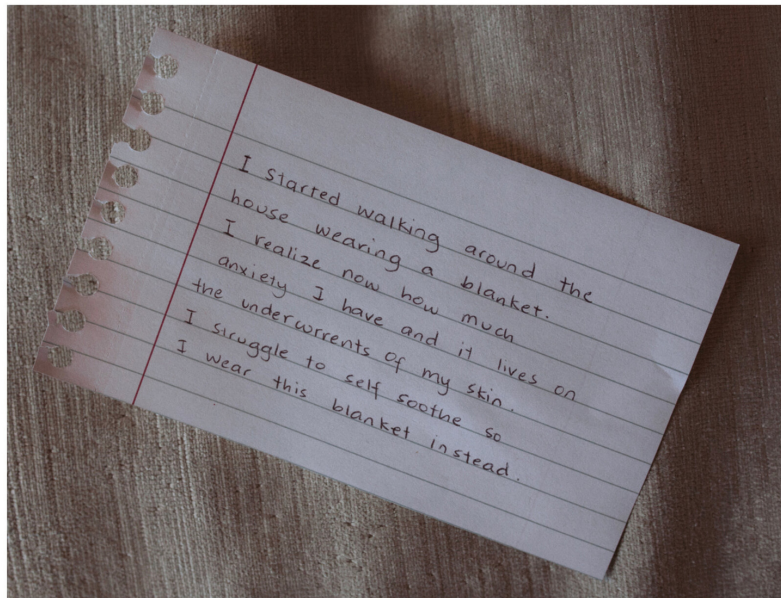 I started walking around the
house wearing a blanket.
I realize now how much
anxiety I have and it lives on
the undercurrents of my skin.
I struggle to self soothe so
I wear this blanket instead.